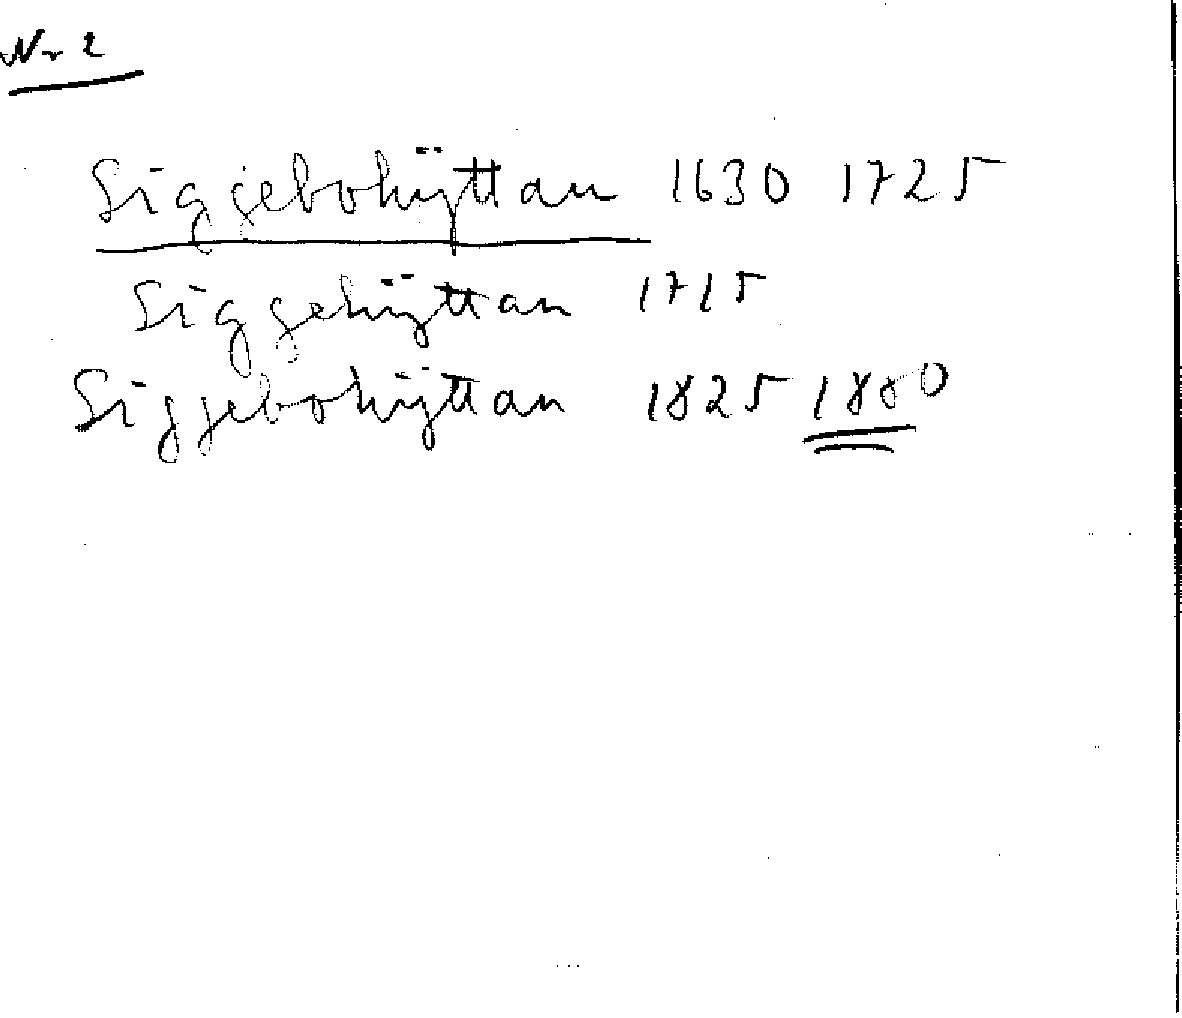 Nr 2
Siggebohÿttan 1630 1725
Siggehÿttan 1715
Siggebohÿttan 1825 1880